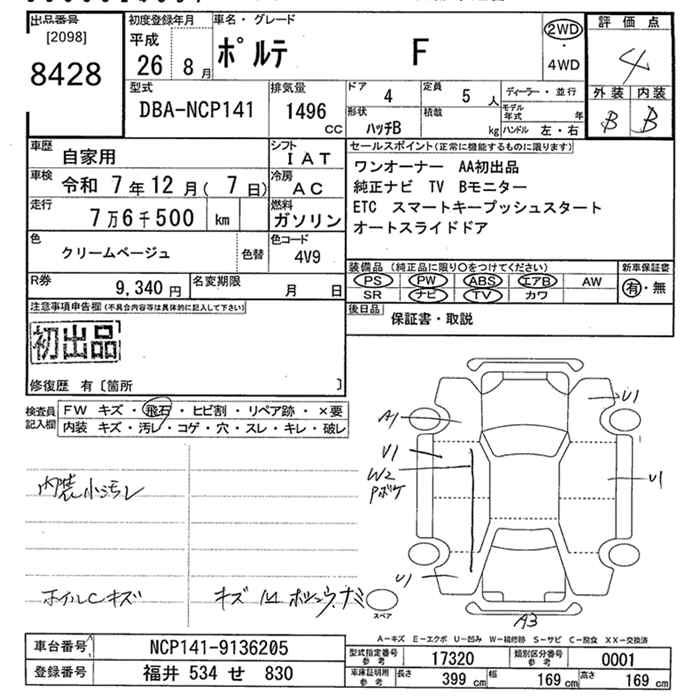 出品番号
[2098]
8428
初度登録年月
平成
26 8月
車名・グレード
ポルテ F
2WD
・
4WD
評価点
4
外装 内装
B B
型式
DBA-NCP141
排気量
1496
CC
ドア
4
定員
5人
形状
ハッチB
積載
kg
ディーラー・並行
モデル
年式 年
ハンドル 左・右
車歴
自家用
シフト
IAT
車検
令和 7年12月(7日)
冷房
AC
走行
7万6千500 km
燃料
ガソリン
色
クリームベージュ
色替
色コード
4V9
R券
9,340円
名変期限
月 日
セールスポイント(正常に機能するものに限ります)
ワンオーナー AA初出品
純正ナビ TV Bモニター
ETC スマートキープッシュスタート
オートスライドドア
装備品(純正品に限り○をつけてください)
PS PW ABS エアB AW
SR ナビ TV カワ
新車保証書
有・無
後日品
保証書・取説
注意事項申告欄(不具合内容等は具体的に記入して下さい)
初出品
修復歴 有〔箇所 〕
検査員
記入欄
FW キズ・飛石・ヒビ割・リペア跡・×要
内装 キズ・汚レ・コゲ・穴・スレ・キレ・破レ
内装小汚レ
ホイルCキズ
キズ
A1
U1
U1
W2
U1
U1
A3
スペア
A-キズ E-エクボ U-凹み W-補修跡 S-サビ C-腐食 XX-交換済
車台番号
NCP141-9136205
登録番号
福井 534 せ 830
型式指定番号
参考
17320
類別区分番号
参考
0001
車庫証明用
参考
長さ
399 cm
幅
169 cm
高さ
169 cm